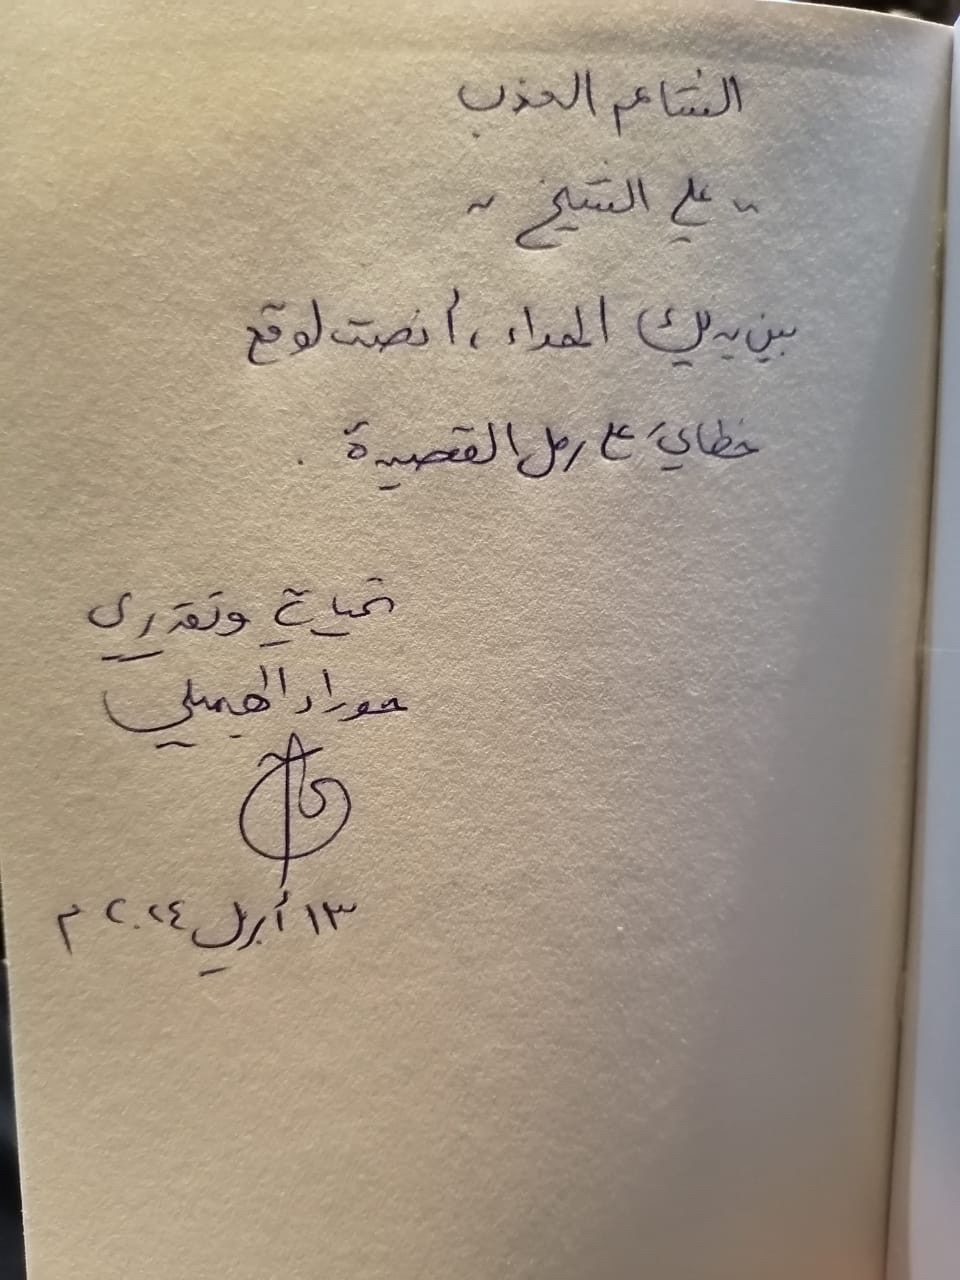 الشاعر العذب
" علي الشيخ "
بين يديك المداء، أنصت لوقع
خطايَ على رمل القصيدة .
تحياتي وتقديري
جواد الجميلي
١٣ أبريل ٢٠٢٤ م